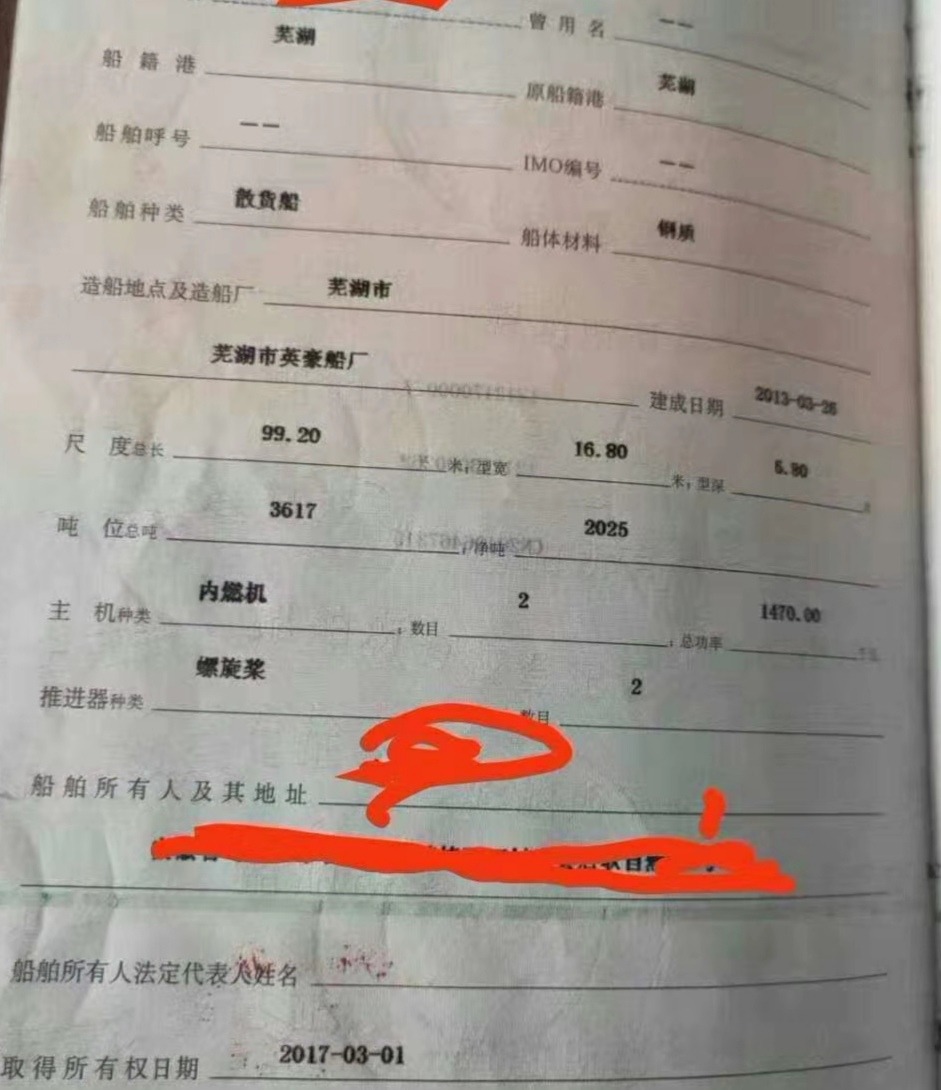 曾用名 --
船籍港 芜湖 原船籍港 芜湖
船舶呼号 -- IMO编号 --
船舶种类 散货船 船体材料 钢质
造船地点及造船厂 芜湖市
芜湖市英豪船厂 建成日期 2013-03-26
尺 度总长 99.20 米;型宽 16.80 米;型深 5.80
吨 位总吨 3617 ;净吨 2025
主 机种类 内燃机 ;数目 2 ;总功率 1470.00
推进器种类 螺旋桨 数目 2
船舶所有人及其地址
船舶所有人法定代表人姓名
取得所有权日期 2017-03-01